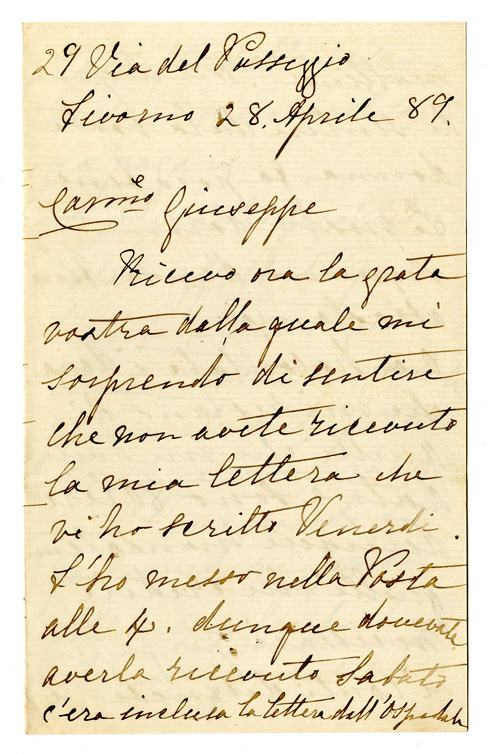 29 Via del Passeggio
Livorno 28. Aprile 89.
Carmo Giuseppe
Ricevo ora la grata
vostra dalla quale mi
sorprendo di sentire
che non avete ricevuto
la mia lettera che
vi ho scritto Venerdi.
L'ho messo nella Posta
alle 4. dunque dovevate
averla ricevuto Sabato
c'era inclusa la lettera dall'Ospedale